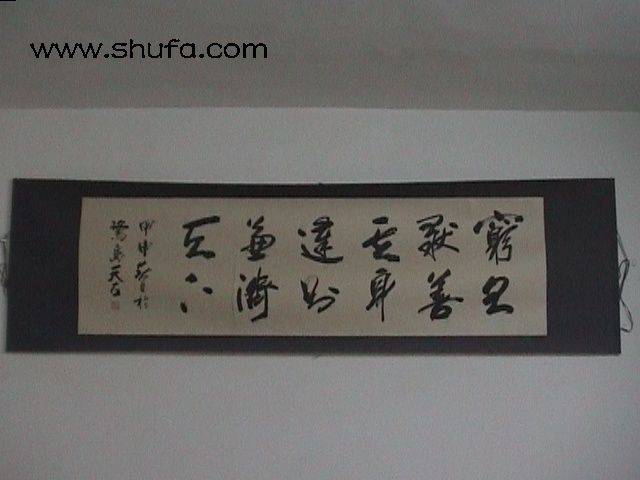 www.shufa.com
窮則
獨善
其身
達則
兼濟
天下
甲申春於
鷺島